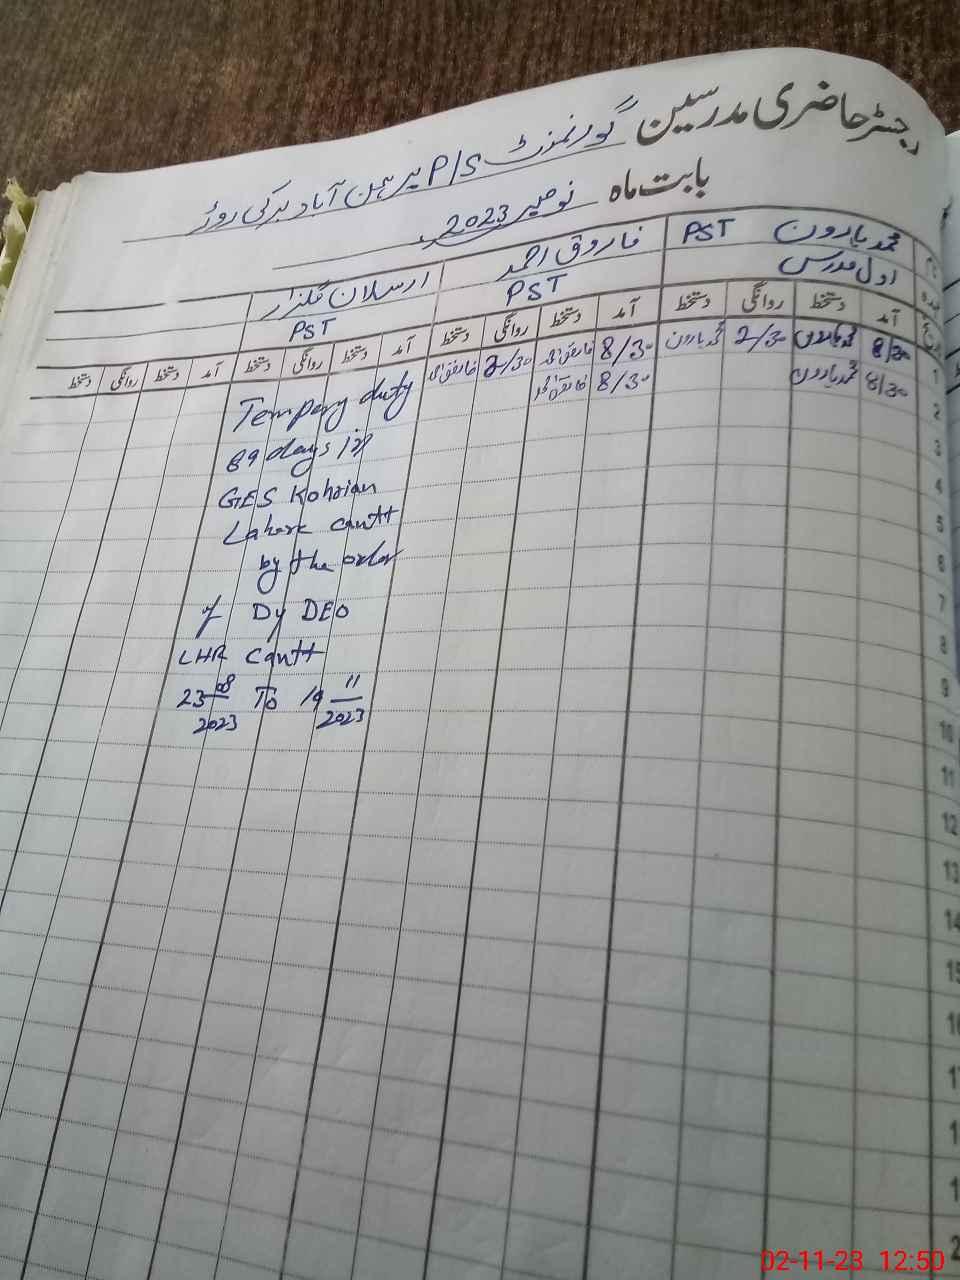 رجسٹر حاضری مدرسین گورنمنٹ P/S برہمن آباد برکی روڈ
بابت ماہ نومبر 2023
نام محمد ہارون PST فاروق احمد ارسلان گلزار
عہدہ اول مدرس PST PST
آمد دستخط روانگی دستخط آمد دستخط روانگی دستخط آمد دستخط روانگی دستخط آمد دستخط روانگی دستخط
1 8/30 محمد ہارون 2/30 محمد ہارون 8/30 فاروق احمد 2/30 فاروق احمد
2 8/30 محمد ہارون 8/30 فاروق احمد
Tempery duty
89 days in
GES Kohrian
Lahore cantt
by the order
of Dy DEO
LHR Cantt
23 08 2023 To 19 11 2023
3
4
5
6
7
8
9
10
11
12
13
14
15
16
02-11-23 12:50